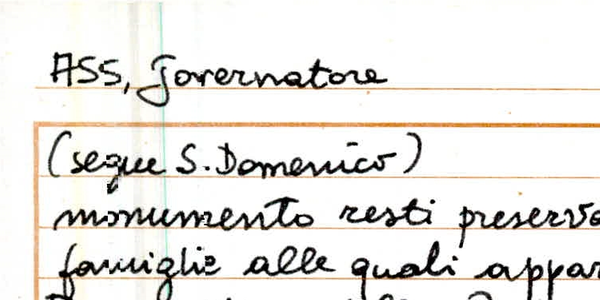 ASS, Governatore
(segue S. Domenico)
monumento resti preserva
famiglie alle quali appar